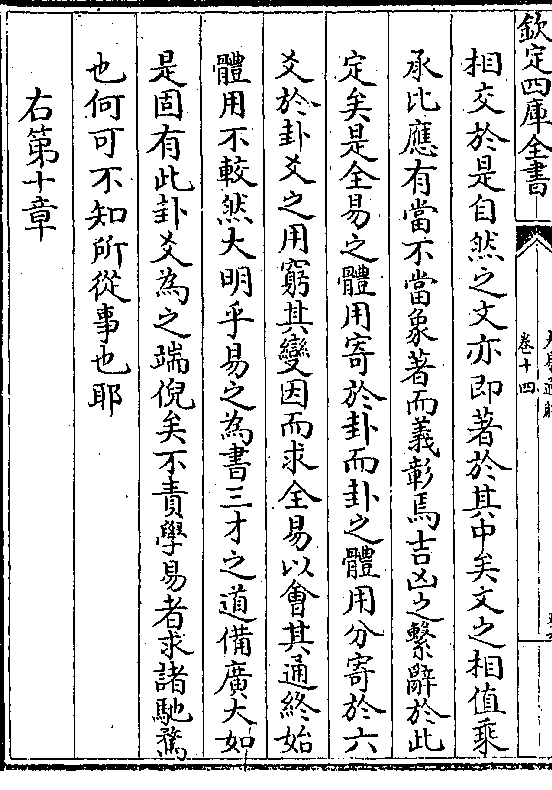 欽定四庫全書
卷十四
相交於是自然之文亦即著於其中矣文之相值乘
承比應有當不當象著而義彰焉吉凶之繫辭於此
定矣是全易之體用寄於卦而卦之體用分寄於六
爻於卦爻之用窮其變因而求全易以會其通終始
體用不較然大明乎易之為書三才之道備廣大如
是固有此卦爻為之端倪矣不責學易者求諸馳騖
也何可不知所從事也耶
右第十章